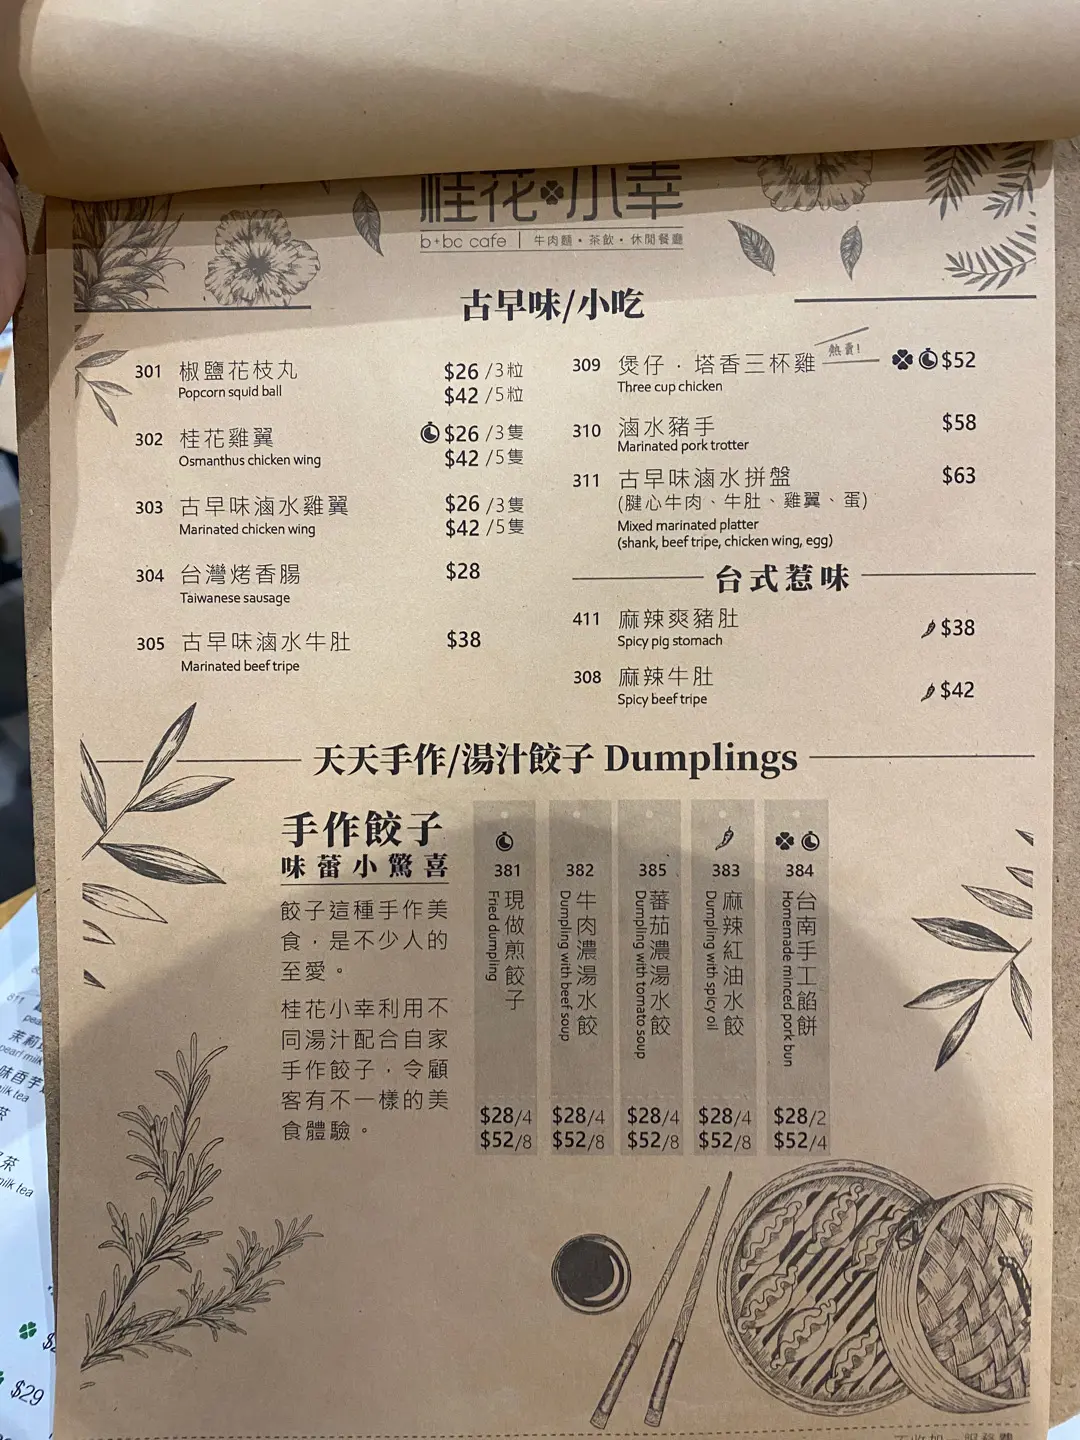 桂花小幸
b+bc cafe | 牛肉麵・茶飲・休閒餐廳
古早味/小吃
301 椒鹽花枝丸 $26 /3粒
Popcorn squid ball $42 /5粒
302 桂花雞翼 $26 /3隻
Osmanthus chicken wing $42 /5隻
303 古早味滷水雞翼 $26 /3隻
Marinated chicken wing $42 /5隻
304 台灣烤香腸 $28
Taiwanese sausage
305 古早味滷水牛肚 $38
Marinated beef tripe
309 煲仔．塔香三杯雞 熱賣! $52
Three cup chicken
310 滷水豬手 $58
Marinated pork trotter
311 古早味滷水拼盤 $63
(腱心牛肉、牛肚、雞翼、蛋)
Mixed marinated platter
(shank, beef tripe, chicken wing, egg)
台式惹味
411 麻辣爽豬肚 $38
Spicy pig stomach
308 麻辣牛肚 $42
Spicy beef tripe
天天手作/湯汁餃子 Dumplings
手作餃子
味蕾小驚喜
餃子這種手作美
食，是不少人的
至愛。
桂花小幸利用不
同湯汁配合自家
手作餃子，令顧
客有不一樣的美
食體驗。
381
現做煎餃子
Fried dumpling
$28/4
$52/8
382
牛肉濃湯水餃
Dumpling with beef soup
$28/4
$52/8
385
蕃茄濃湯水餃
Dumpling with tomato soup
$28/4
$52/8
383
麻辣紅油水餃
Dumpling with spicy oil
$28/4
$52/8
384
台南手工餡餅
Homemade minced pork bun
$28/2
$52/4
811
茉莉
pearl milk
milk tea
茶
milk tea
$29